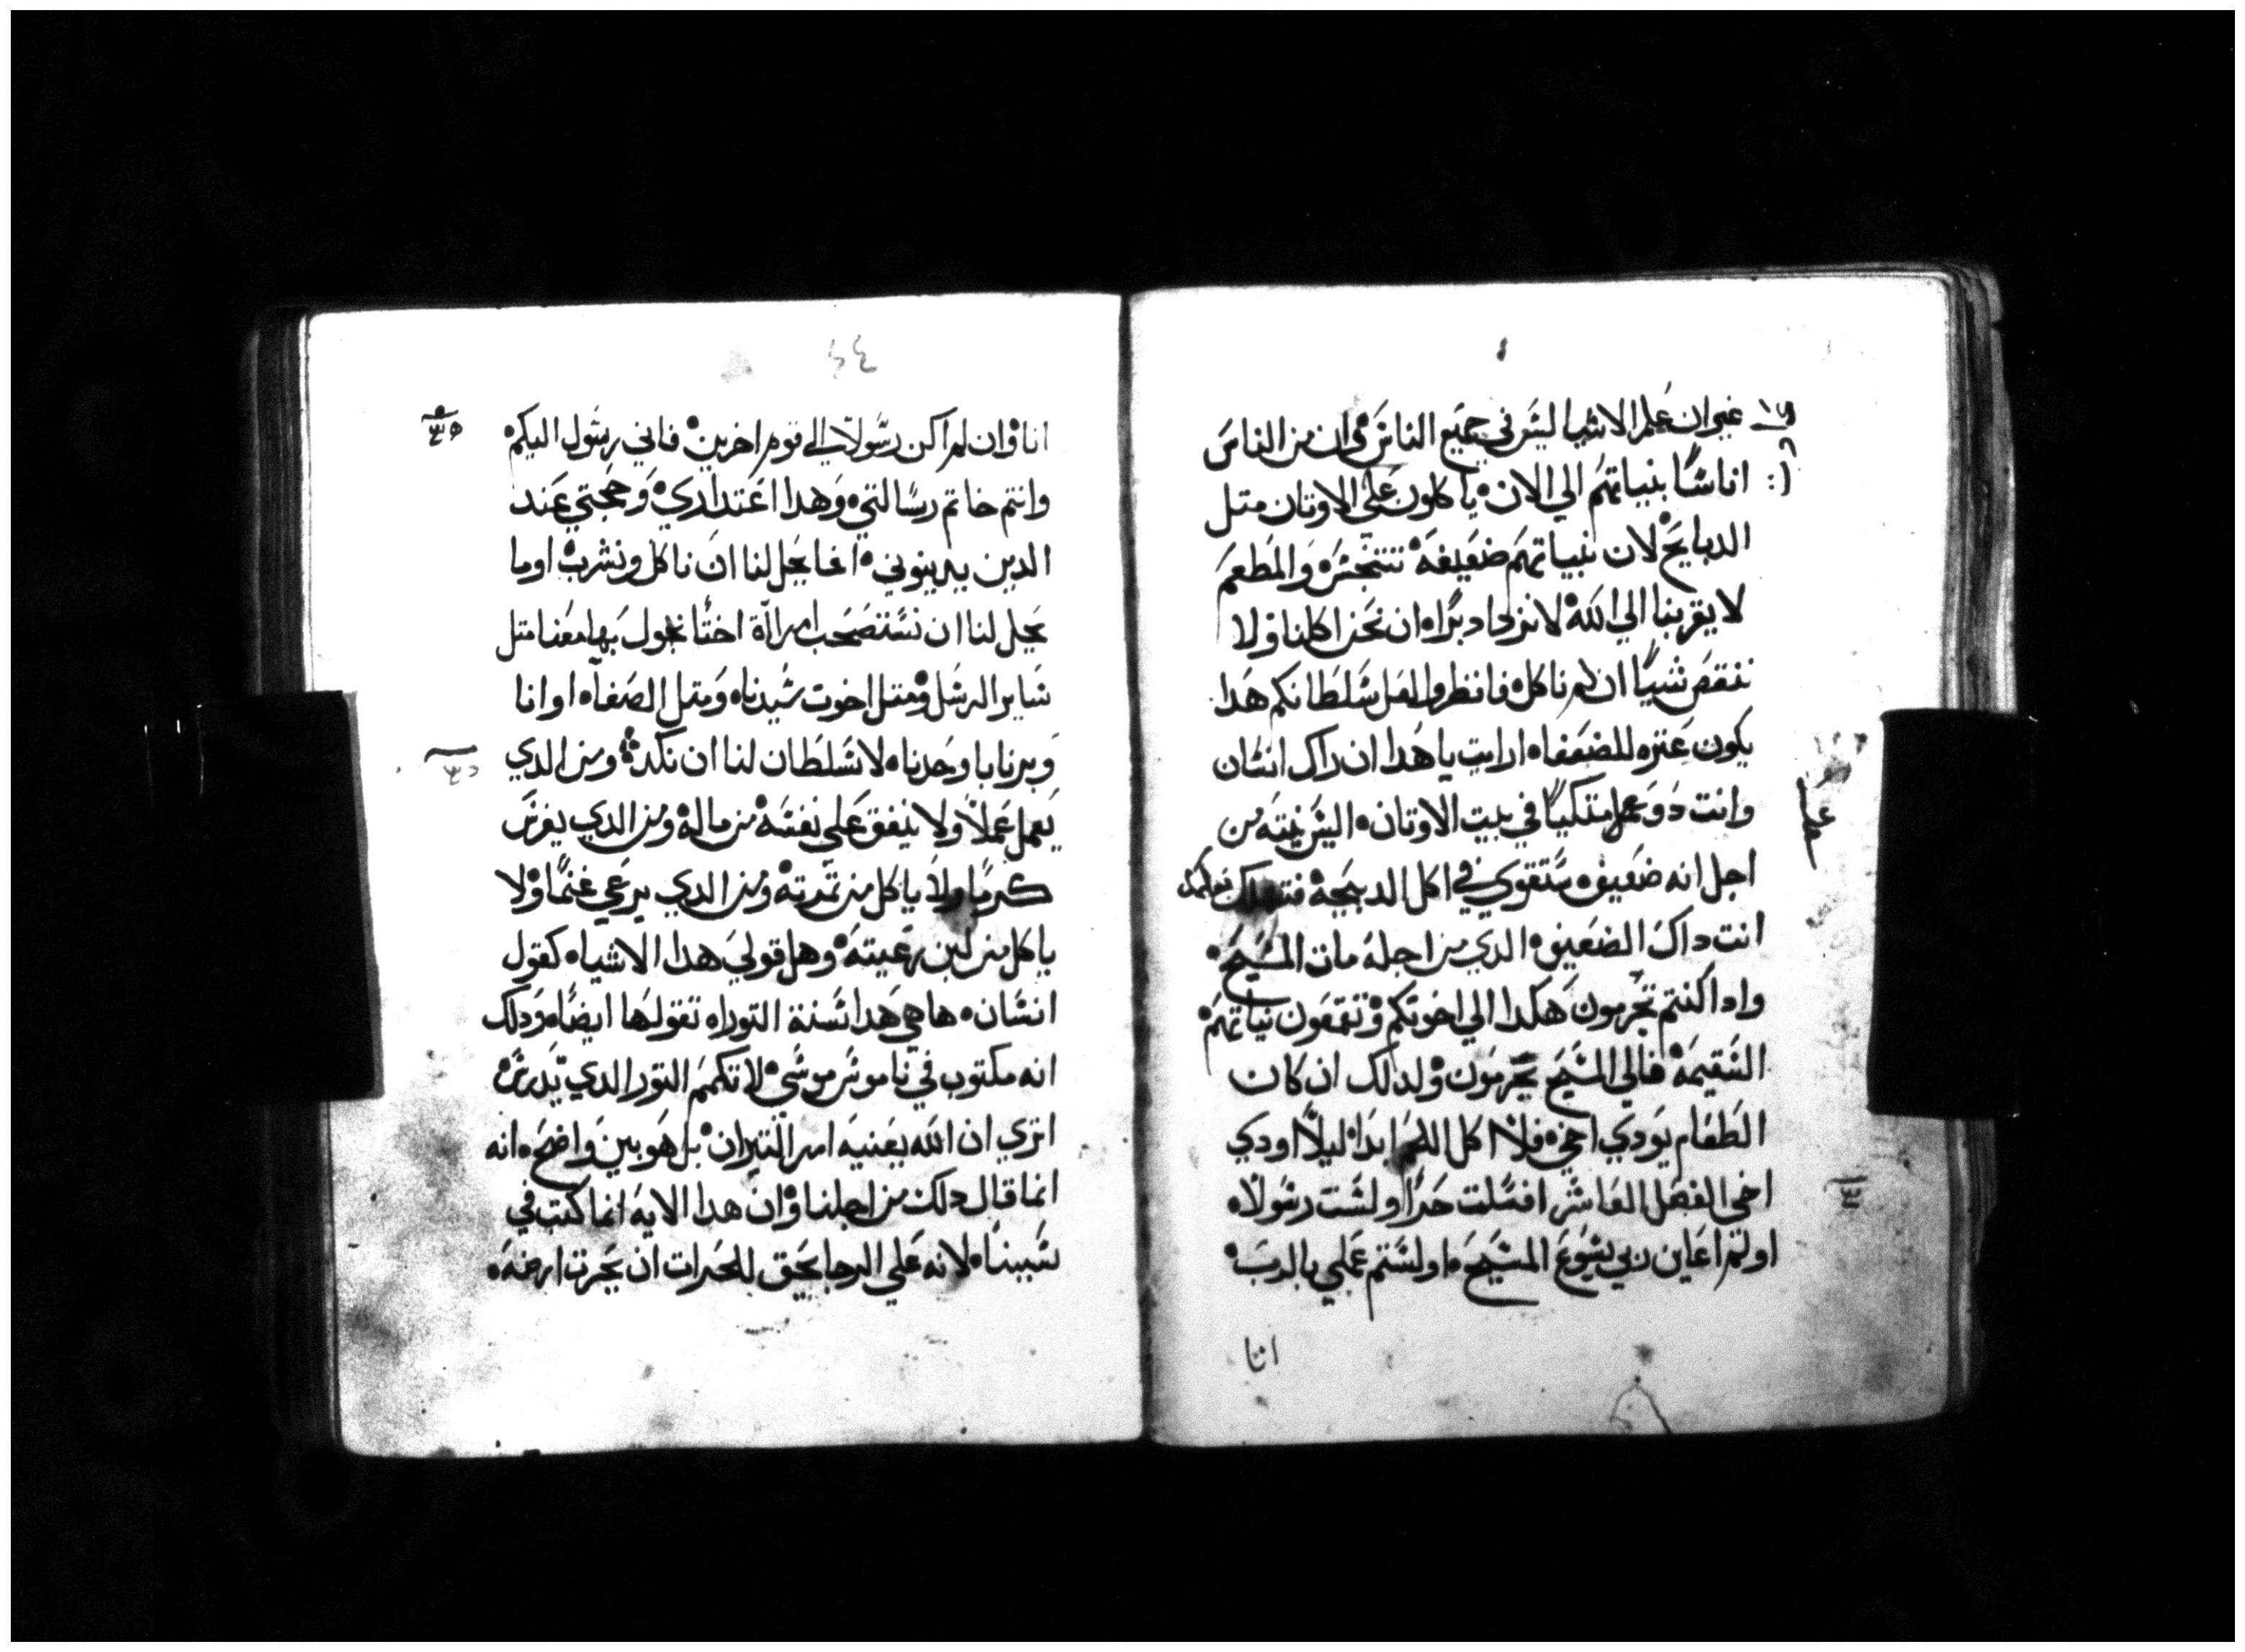 غير ان علم الاشيا ليس في جميع الناس وان من الناس
اناسًا بنياتهم الي الان ياكلون علي الاوتان متل
الدبايح لان نياتهم ضعيفه تتنجس والمطعم
لا يقربنا الي الله لانزداد برًا ان نحن اكلنا ولا
ننقص شييًا ان لم ناكل فانظروا لعل سلطانكم هدا
يكون عتره للضعفا ارايت يا هدا ان راك انسان
وانت دو علم متكيًا في بيت الاوتان اليس نيته من
اجل انه ضعيف ستقوي في اكل الدبيحة فتهلك بعلمك
انت داك الضعيف الدي من اجله مات المسيح
وادا كنتم تجرمون هكدا الي اخوتكم وتقمعون نياتهم
السقيمة فالي المسيح تجرمون ولدلك ان كان
الطعام يودي اخي فلا اكل اللحم ابدا ليلا اودي
اخي الفصل العاشر افسلت حرًا اولست رسولا
اولم اعاين ربي يسوع المسيح اولستم عملي بالرب
انا
٤٤
انا وان لم اكن رسولا الي قوم اخرين فاني رسول اليكم
وانتم خاتم رسالتي وهدا اعتداري وحجتي عند
الدين يدينوني اما يحل لنا ان ناكل ونشرب اوما
يحل لنا ان نستصحب امراة اختًا تجول بها معنا متل
ساير الرسل ومتل اخوت سيدنا ومتل الصفا او انا
وبرنابا وحدنا لا سلطان لنا ان نكد ومن الدي
يعمل عملا ولا ينفق علي نفسه من ماله ومن الدي يغرس
كرمًا ولا ياكل من تمرته ومن الدي يرعي غنمًا ولا
ياكل من لبن رعيته وهل قولي هدا الاشيا كقول
انسان ها هي هدا سنة التوراه تقولها ايضا ودلك
انه مكتوب في ناموس موسي لا تكمم التور الدي يدرس
اتري ان الله يعنيه امر التيران بل هو بين واضح انه
انما قال دلك من اجلنا وان هدا الايه انما كتب في
سببنا لانه علي الرجا يحق للحرات ان يحرت ارضه